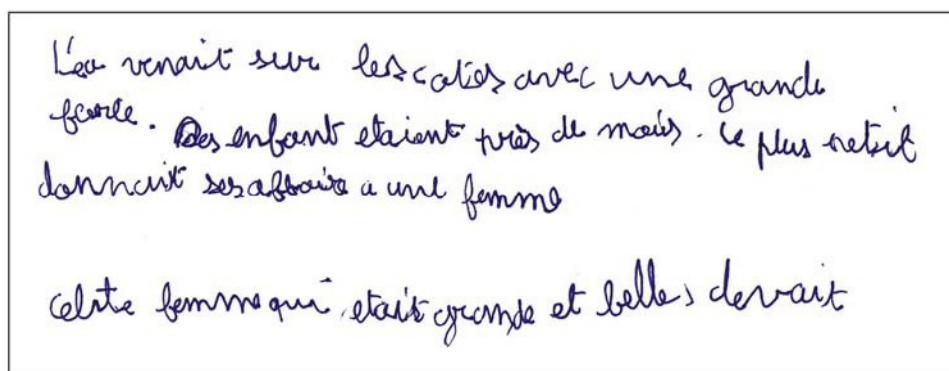 L'eau venait sur les cotés avec une grande
force. Des enfant etaient près de mois. Le plus petit
donnait ses affaire a une femme
celste femme qui etait grande et belles devait